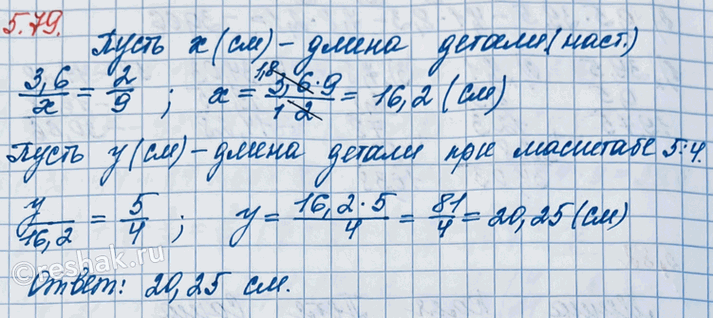 5.79.
Пусть x(см) – длина детали (наст.)
3,6/x = 2/9 ; x = 3,6·9/2 = 16,2 (см) 1,8 1
Пусть y(см) – длина детали при масштабе 5:4.
y/16,2 = 5/4 ; y = 16,2·5/4 = 81/4 = 20,25 (см)
Ответ: 20,25 см.
©reshak.ru